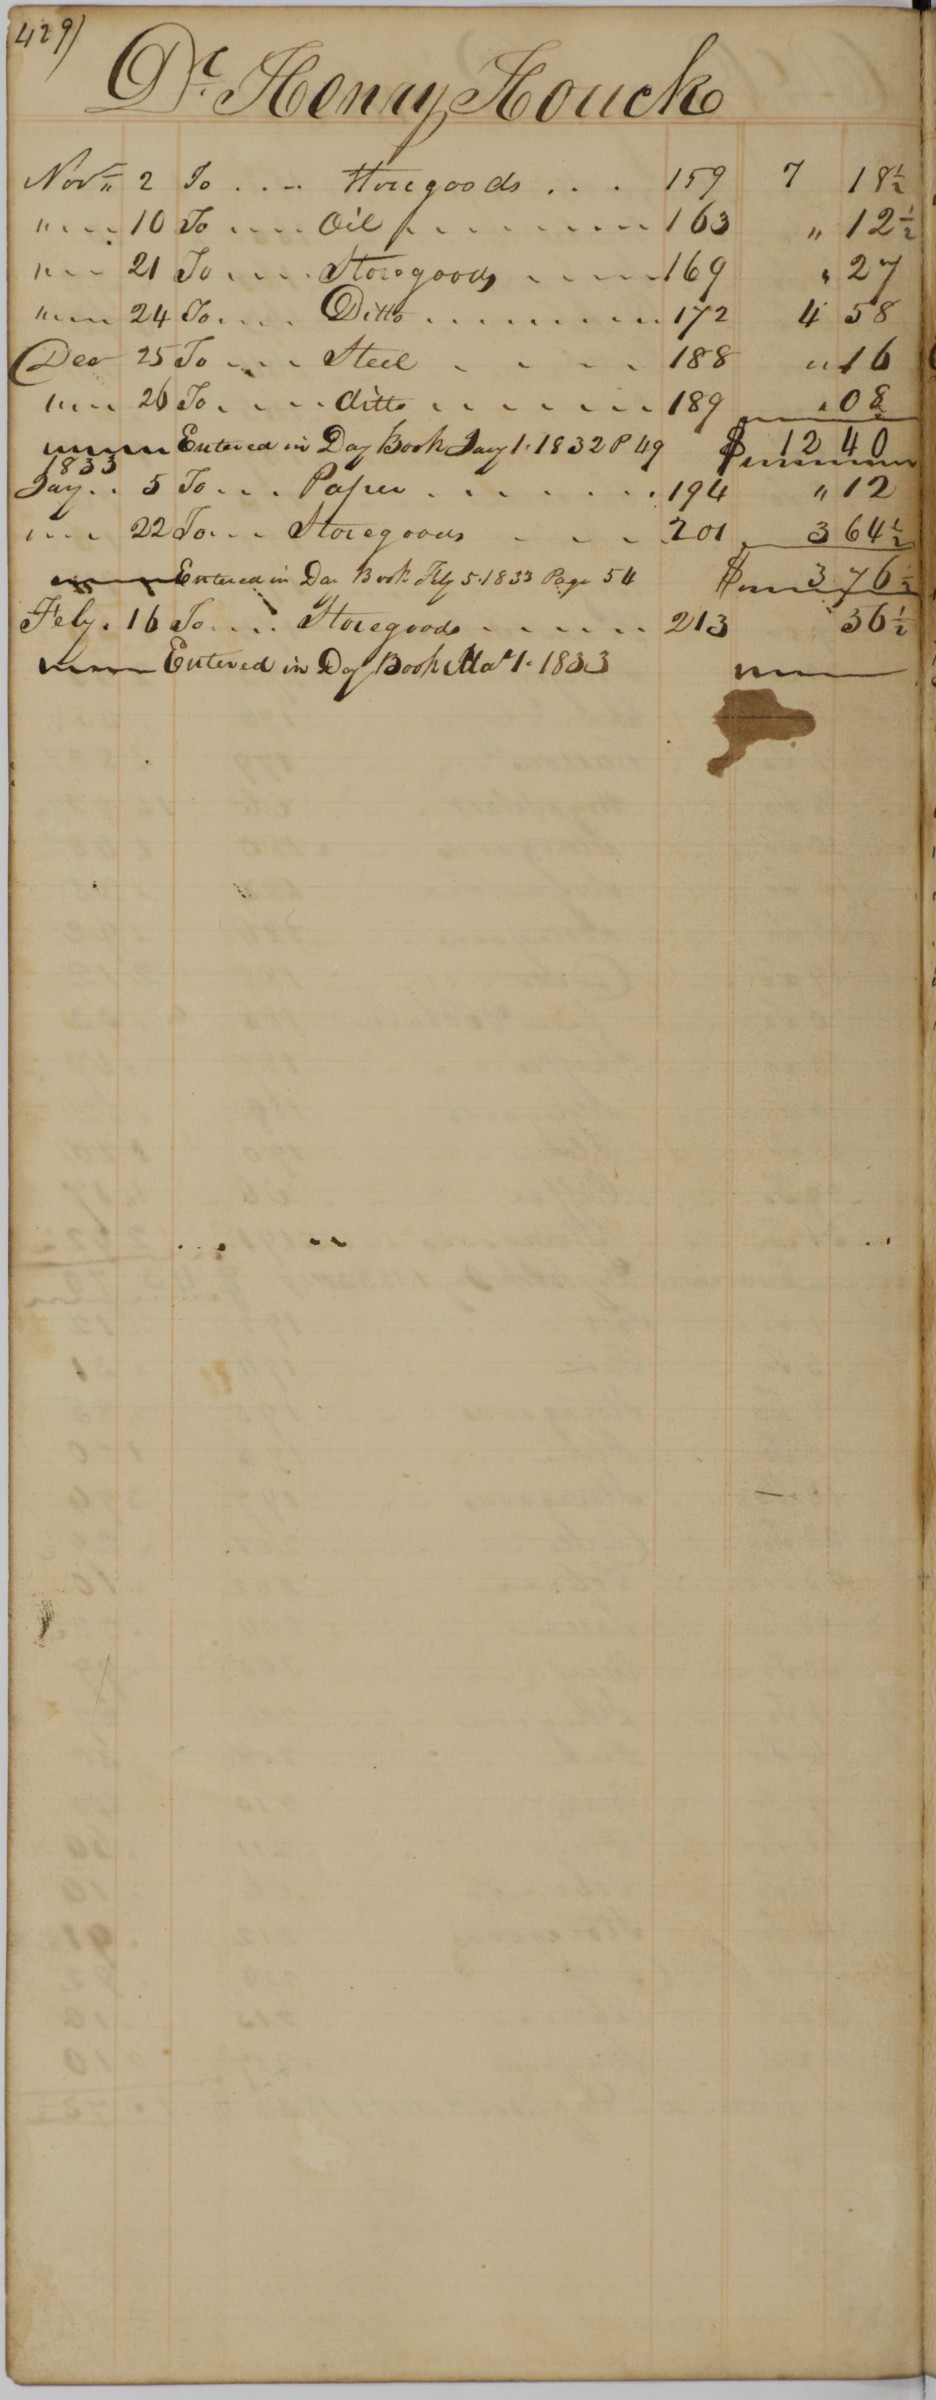 429)
Dr. Henry Houck
Novr " 2 To .... Storegoods ... 159 7 18½
" 10 To .... Oil ........ 163 " 12½
" 21 To .... Storegoods ..... 169 " 27
" 24 To .... Ditto ......... 172 4 58
Dec 25 To .... Steel ..... 188 " 16
" 26 To .... ditto ....... 189 " 08
Entered in Day Book Jay 1. 1832 P 49 $ 12 40
1833
Jay .. 5 To ... Paper ....... 194 " 12
" 22 To ... Storegoods .... 201 3 64½
Entered in Day Book Feby 5. 1833 Page 54 $ 3 76½
Feby. 16 To .... Storegoods ...... 213 36½
Entered in Day Book Mar 1. 1833